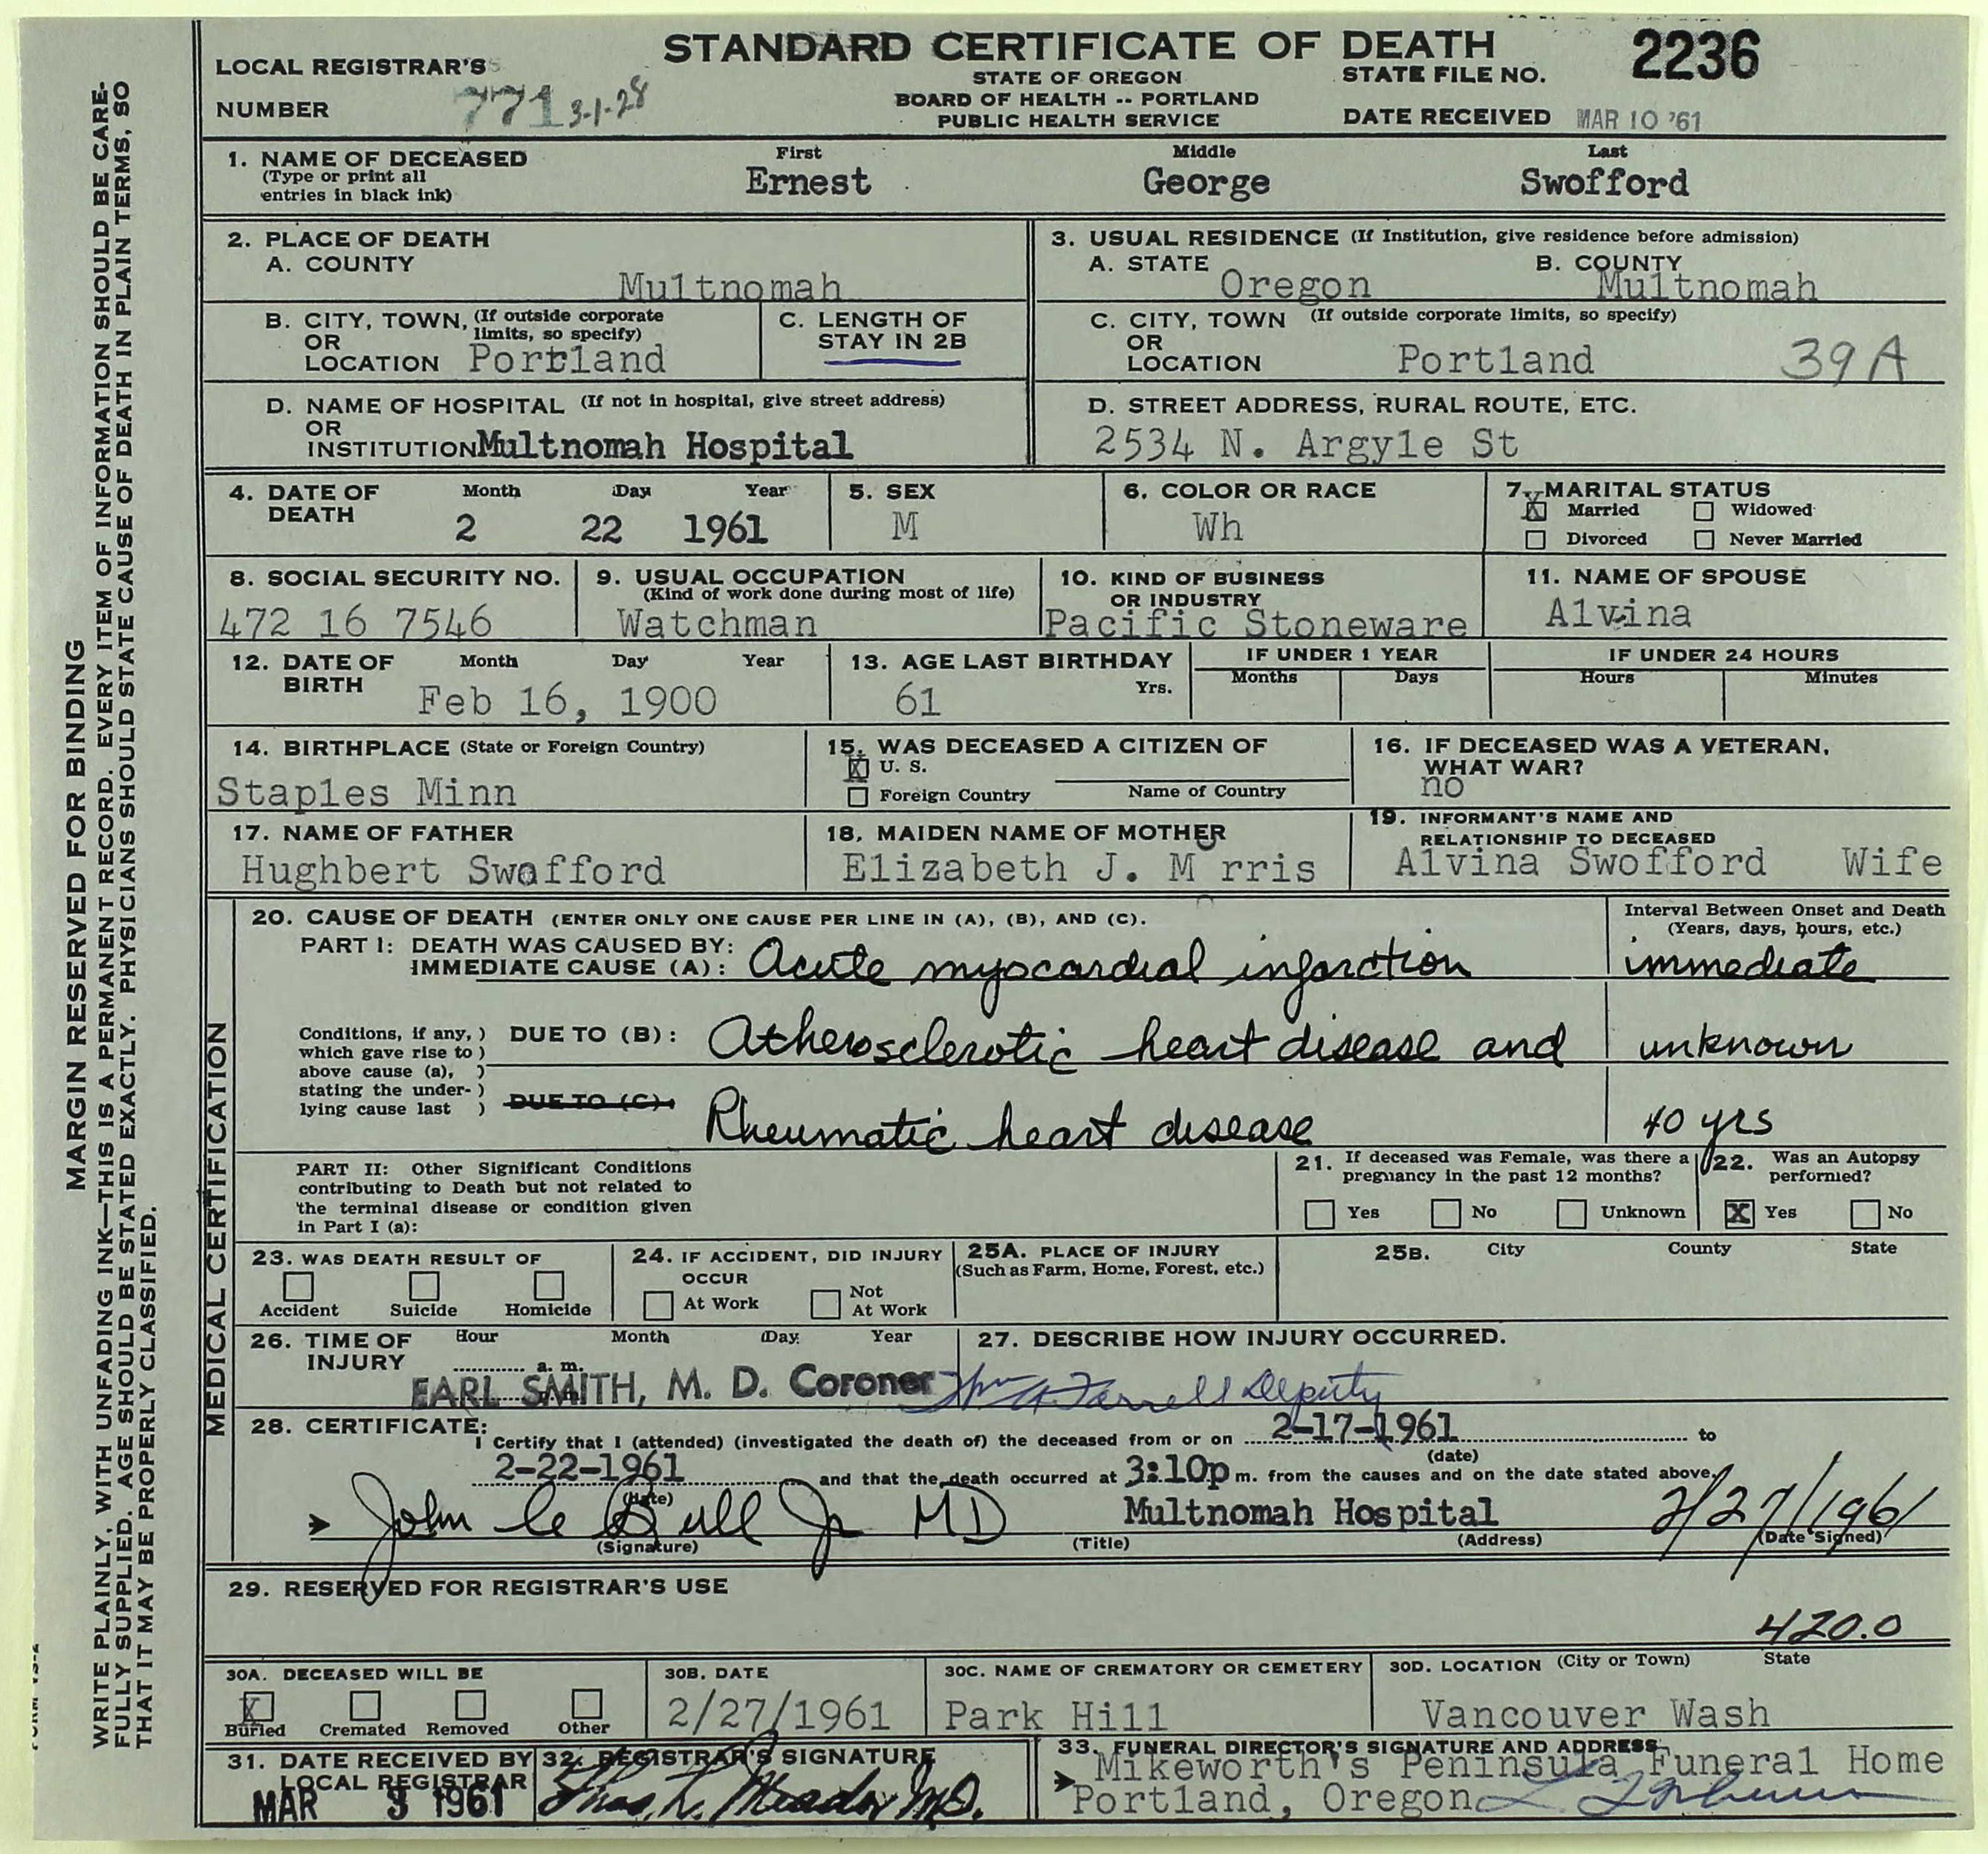 STANDARD CERTIFICATE OF DEATH
STATE OF OREGON
BOARD OF HEALTH -- PORTLAND
PUBLIC HEALTH SERVICE
LOCAL REGISTRAR'S
NUMBER 771 3-1-28
STATE FILE NO. 2236
DATE RECEIVED MAR 10 '61
MARGIN RESERVED FOR BINDING
WRITE PLAINLY, WITH UNFADING INK—THIS IS A PERMANENT RECORD. EVERY ITEM OF INFORMATION SHOULD BE CARE-
FULLY SUPPLIED. AGE SHOULD BE STATED EXACTLY. PHYSICIANS SHOULD STATE CAUSE OF DEATH IN PLAIN TERMS, SO
THAT IT MAY BE PROPERLY CLASSIFIED.
1. NAME OF DECEASED
(Type or print all
entries in black ink)
First Middle Last
Ernest George Swofford
2. PLACE OF DEATH
A. COUNTY
Multnomah
B. CITY, TOWN, (If outside corporate
OR limits, so specify)
LOCATION Portland
C. LENGTH OF
STAY IN 2B
D. NAME OF HOSPITAL (If not in hospital, give street address)
OR
INSTITUTION Multnomah Hospital
3. USUAL RESIDENCE (If Institution, give residence before admission)
A. STATE B. COUNTY
Oregon Multnomah
C. CITY, TOWN (If outside corporate limits, so specify)
OR
LOCATION Portland 39A
D. STREET ADDRESS, RURAL ROUTE, ETC.
2534 N. Argyle St
4. DATE OF
DEATH
Month Day Year
2 22 1961
5. SEX
M
6. COLOR OR RACE
Wh
7. MARITAL STATUS
X Married Widowed
Divorced Never Married
8. SOCIAL SECURITY NO.
472 16 7546
9. USUAL OCCUPATION
(Kind of work done during most of life)
Watchman
10. KIND OF BUSINESS
OR INDUSTRY
Pacific Stoneware
11. NAME OF SPOUSE
Alvina
12. DATE OF
BIRTH
Month Day Year
Feb 16, 1900
13. AGE LAST BIRTHDAY
Yrs.
61
IF UNDER 1 YEAR
Months Days
IF UNDER 24 HOURS
Hours Minutes
14. BIRTHPLACE (State or Foreign Country)
Staples Minn
15. WAS DECEASED A CITIZEN OF
X U. S.
Foreign Country Name of Country
16. IF DECEASED WAS A VETERAN,
WHAT WAR?
no
17. NAME OF FATHER
Hughbert Swofford
18. MAIDEN NAME OF MOTHER
Elizabeth J. Morris
19. INFORMANT'S NAME AND
RELATIONSHIP TO DECEASED
Alvina Swofford Wife
MEDICAL CERTIFICATION
20. CAUSE OF DEATH (ENTER ONLY ONE CAUSE PER LINE IN (A), (B), AND (C).
Interval Between Onset and Death
(Years, days, hours, etc.)
PART I: DEATH WAS CAUSED BY:
IMMEDIATE CAUSE (A): Acute myocardial infarction immediate
Conditions, if any, )
which gave rise to )
above cause (a), )
stating the under- )
lying cause last )
DUE TO (B): Atherosclerotic heart disease and unknown
DUE TO (C): Rheumatic heart disease 40 yrs
PART II: Other Significant Conditions
contributing to Death but not related to
the terminal disease or condition given
in Part I (a):
21. If deceased was Female, was there a
pregnancy in the past 12 months?
Yes No Unknown
22. Was an Autopsy
performed?
X Yes No
23. WAS DEATH RESULT OF
Accident Suicide Homicide
24. IF ACCIDENT, DID INJURY
OCCUR
At Work Not
At Work
25A. PLACE OF INJURY
(Such as Farm, Home, Forest, etc.)
25B. City County State
26. TIME OF
INJURY
Hour Month Day Year
a. m.
27. DESCRIBE HOW INJURY OCCURRED.
EARL SMITH, M. D. Coroner Wm A Farrell Deputy
28. CERTIFICATE:
I Certify that I (attended) (investigated the death of) the deceased from or on 2-17-1961 to
(date)
2-22-1961 and that the death occurred at 3:10p m. from the causes and on the date stated above.
(date)
Multnomah Hospital 2/27/1961
(Signature) (Title) (Address) (Date Signed)
29. RESERVED FOR REGISTRAR'S USE
420.0
30A. DECEASED WILL BE
X Buried Cremated Removed Other
30B. DATE
2/27/1961
30C. NAME OF CREMATORY OR CEMETERY
Park Hill
30D. LOCATION (City or Town) State
Vancouver Wash
31. DATE RECEIVED BY
LOCAL REGISTRAR
MAR 9 1961
32. REGISTRAR'S SIGNATURE
33. FUNERAL DIRECTOR'S SIGNATURE AND ADDRESS
Mikeworth's Peninsula Funeral Home
Portland, Oregon